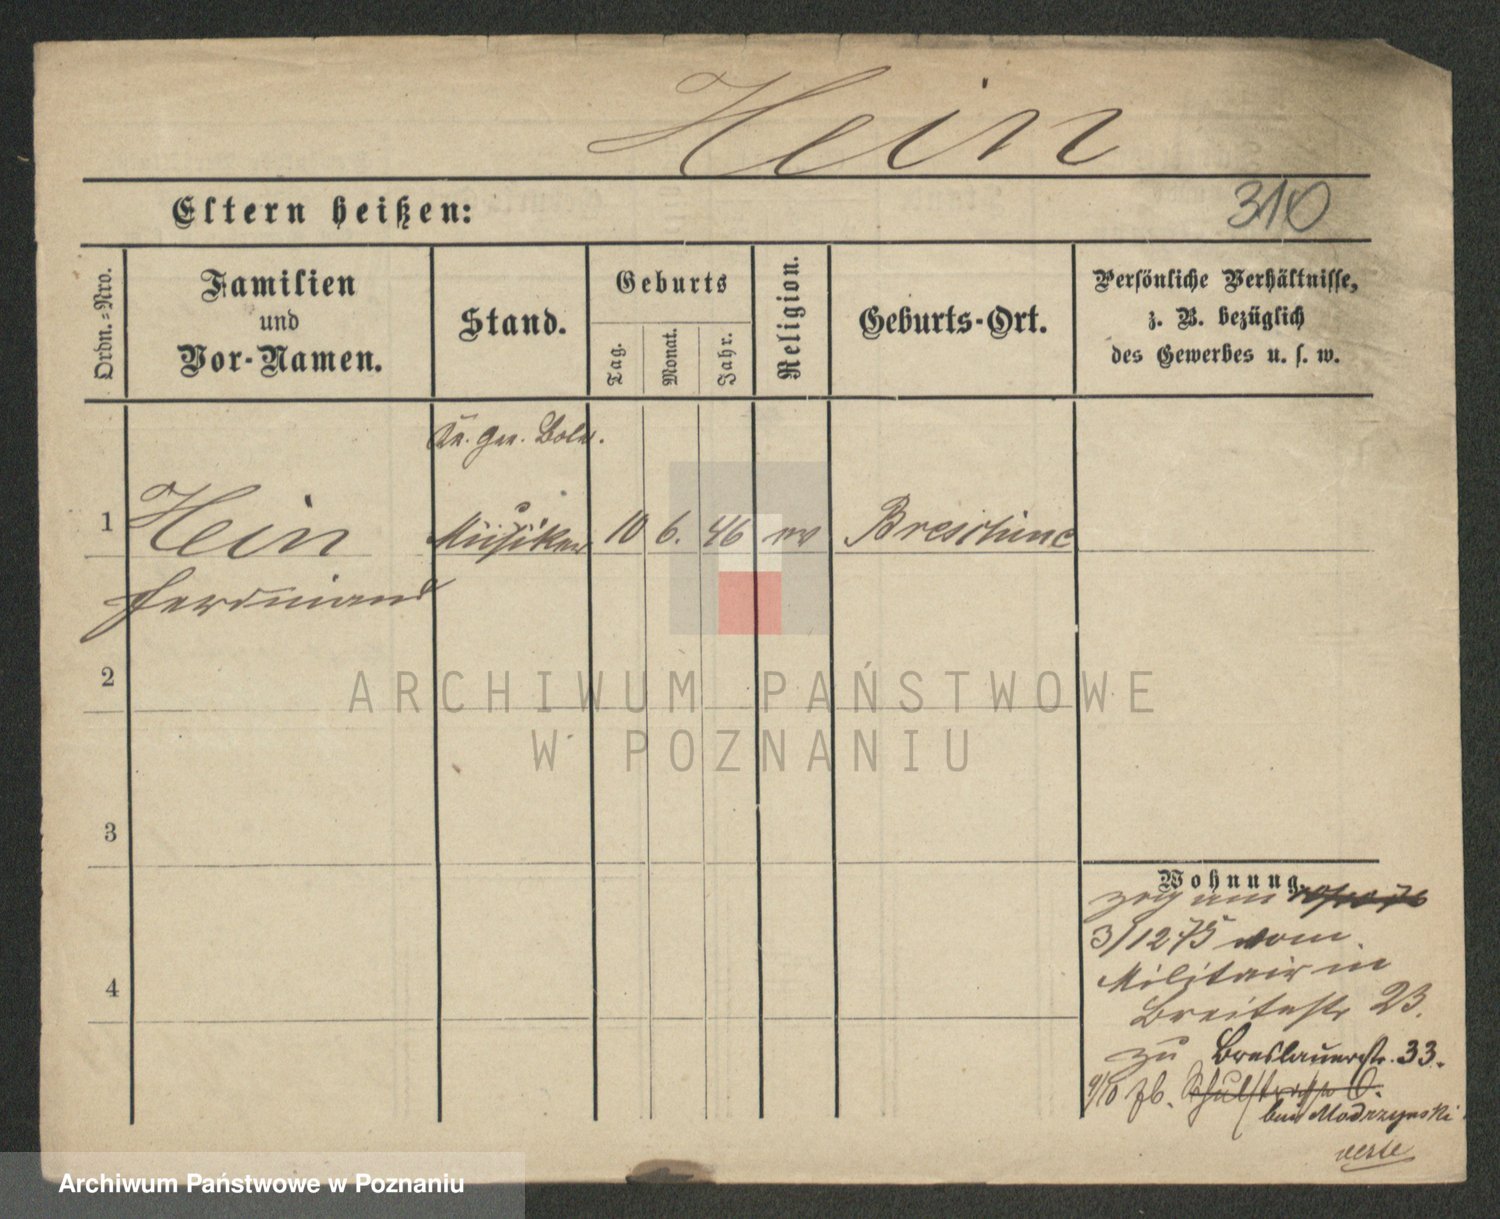 Hein
310
Eltern heißen:
Ordn.-Nro.
Familien
und
Vor-Namen.
Stand.
Geburts
Tag.
Monat.
Jahr.
Religion.
Geburts-Ort.
Persönliche Verhältnisse,
z. B. bezüglich
des Gewerbes u. s. w.
1
Hein
Musiker
10 6. 46 ev
Ferdinand
2
3
4
ARCHIWUM PAŃSTWOWE
W POZNANIU
Wohnung.
zog am
3/12 75 vom
Militair in
Breitestr 23.
zu Breslauerstr. 33.
9/10 Schulstrasse
bei Modrzynski
Archiwum Państwowe w Poznaniu